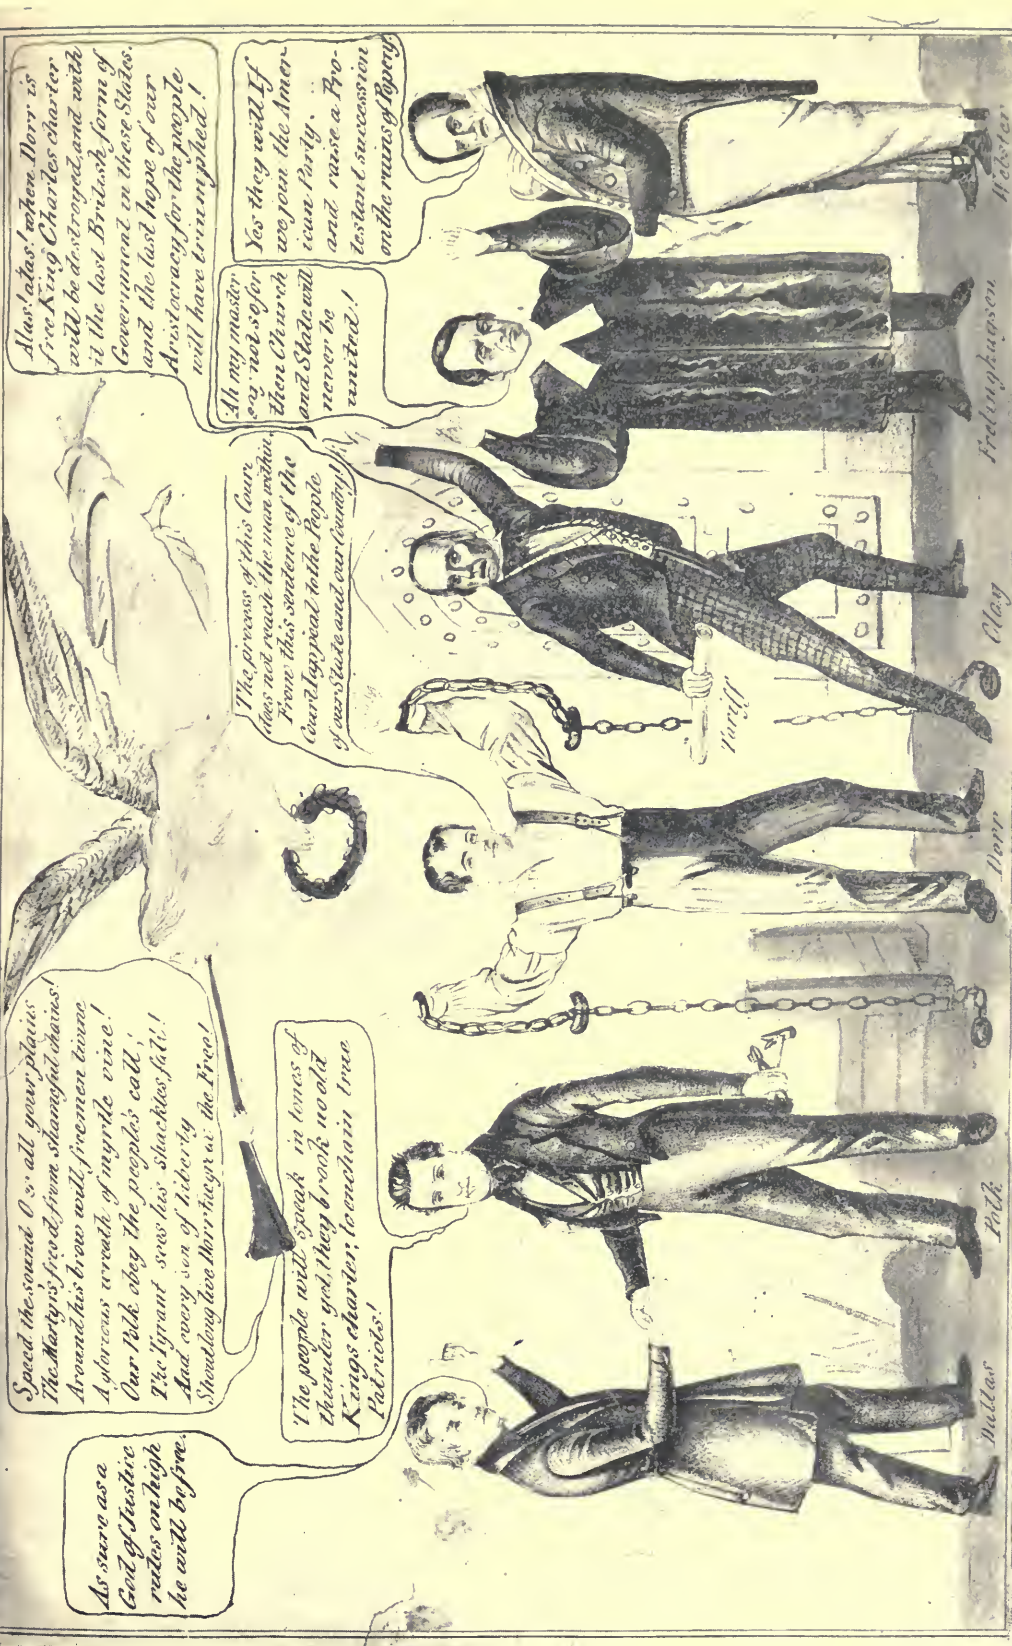 As sure as a
God of Justice
rules on high
he will be free.
Speed the sound O er all your plains
The Martyr's freed from shameful chains!
Around his brow will firemen twine
A glorious wreath of myrtle vine!
Our Polk obey the people's call;
The Tyrant sees his shackles fall!
And every son of liberty
Shout loug have Dorr
the Free!
The people will speak in tones of
thunder yet, they brook no old
Kings charter; to enchain true
Patriots!
The process of this Court
does not reach the man within
From this sentence of the
Court I appeal to the People
of our State and our Country!
Alas! alas! when Dorr is
free King Charles charter
will be destroyed, and with
it the last British form of
Government in these States.
and the last hope of our
Aristocracy for the people
will have triumphed!
Ah my master
say not so for
then Church
and State will
never be
united!
Yes they will If
we join the Amer-
ican Party. --
and raise a Pro-
testant succession
on the ruins of Popery.
Tariff
Dallas
Polk
Dorr
Clay
Frelinghuysen
Webster